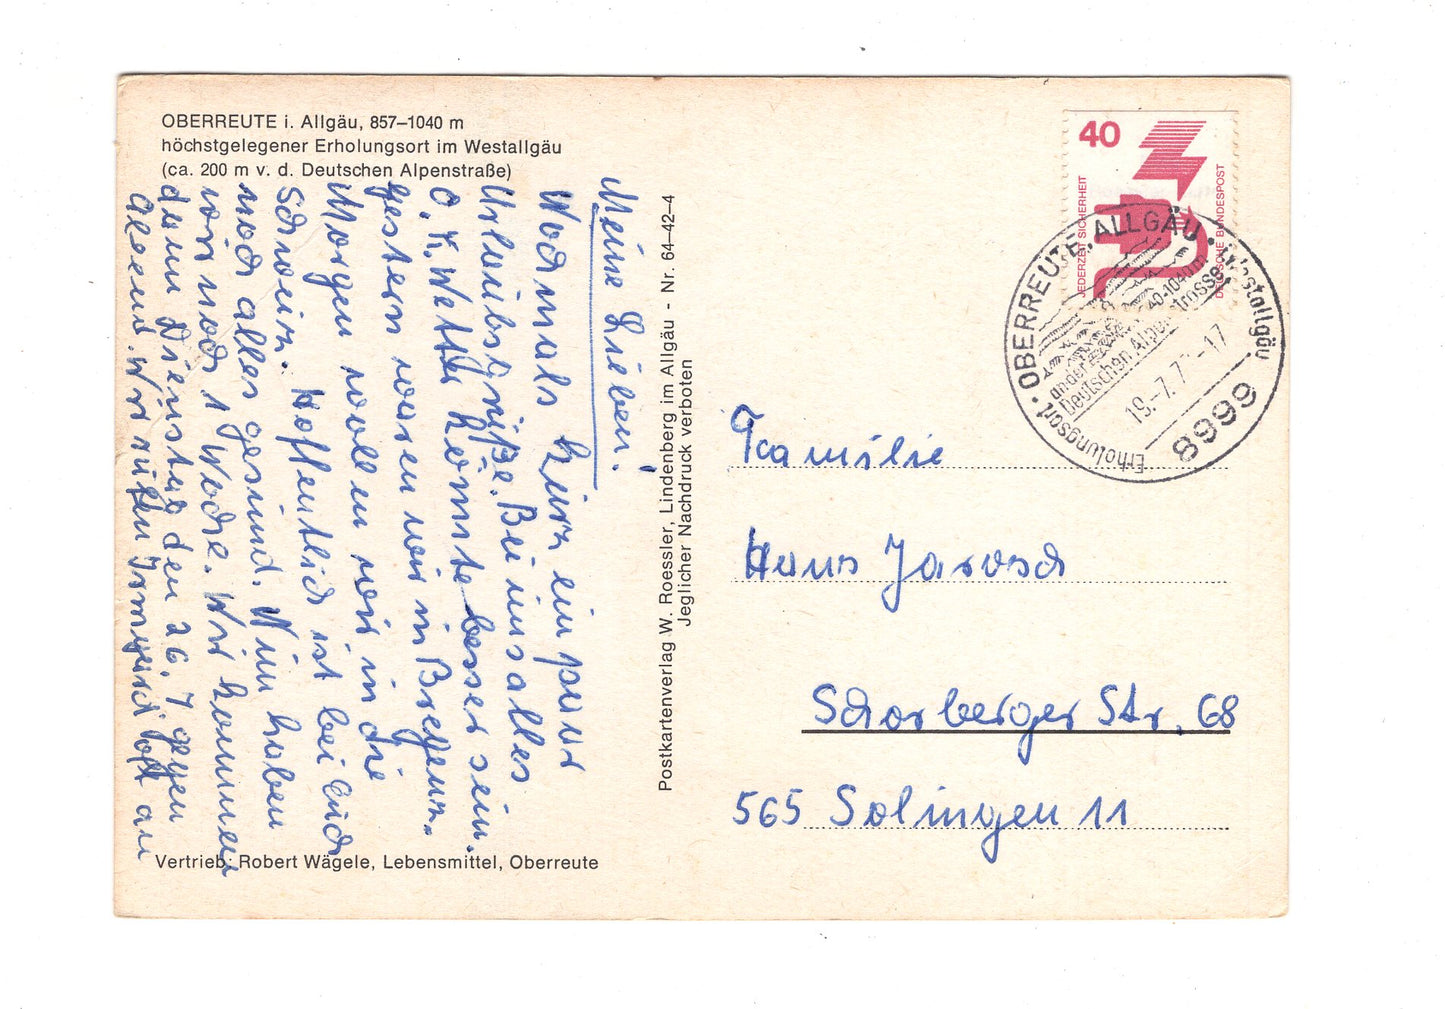 OBERREUTE i. Allgäu, 857–1040 m
höchstgelegener Erholungsort im Westallgäu
(ca. 200 m v. d. Deutschen Alpenstraße)
Meine Lieben!
Nochmals kurz ein paar
Urlaubsgrüße. Bei uns alles
o.K. Wetter könnte besser sein.
gestern waren wir in Bregenz.
Morgen wollen wir in die
Schweiz. Hoffentlich ist bei Euch
noch alles gesund. Wir haben
wir noch 1 Woche. Wir kommen
dann Dienstag den 26. 7 gegen
Abend. Wir rufen Irmgard oft an
Vertrieb: Robert Wägele, Lebensmittel, Oberreute
Postkartenverlag W. Roessler, Lindenberg im Allgäu - Nr. 64-42-4
Jeglicher Nachdruck verboten
40
JEDERZEIT SICHERHEIT
DEUTSCHE BUNDESPOST
OBERREUTE, ALLGÄU · Westallgäu
Erholungsort
an der
Deutschen Alpenstrasse
19.-7.7 -17
8999
Familie
Hans Jarosch
Schorberger Str. 68
565 Solingen 11